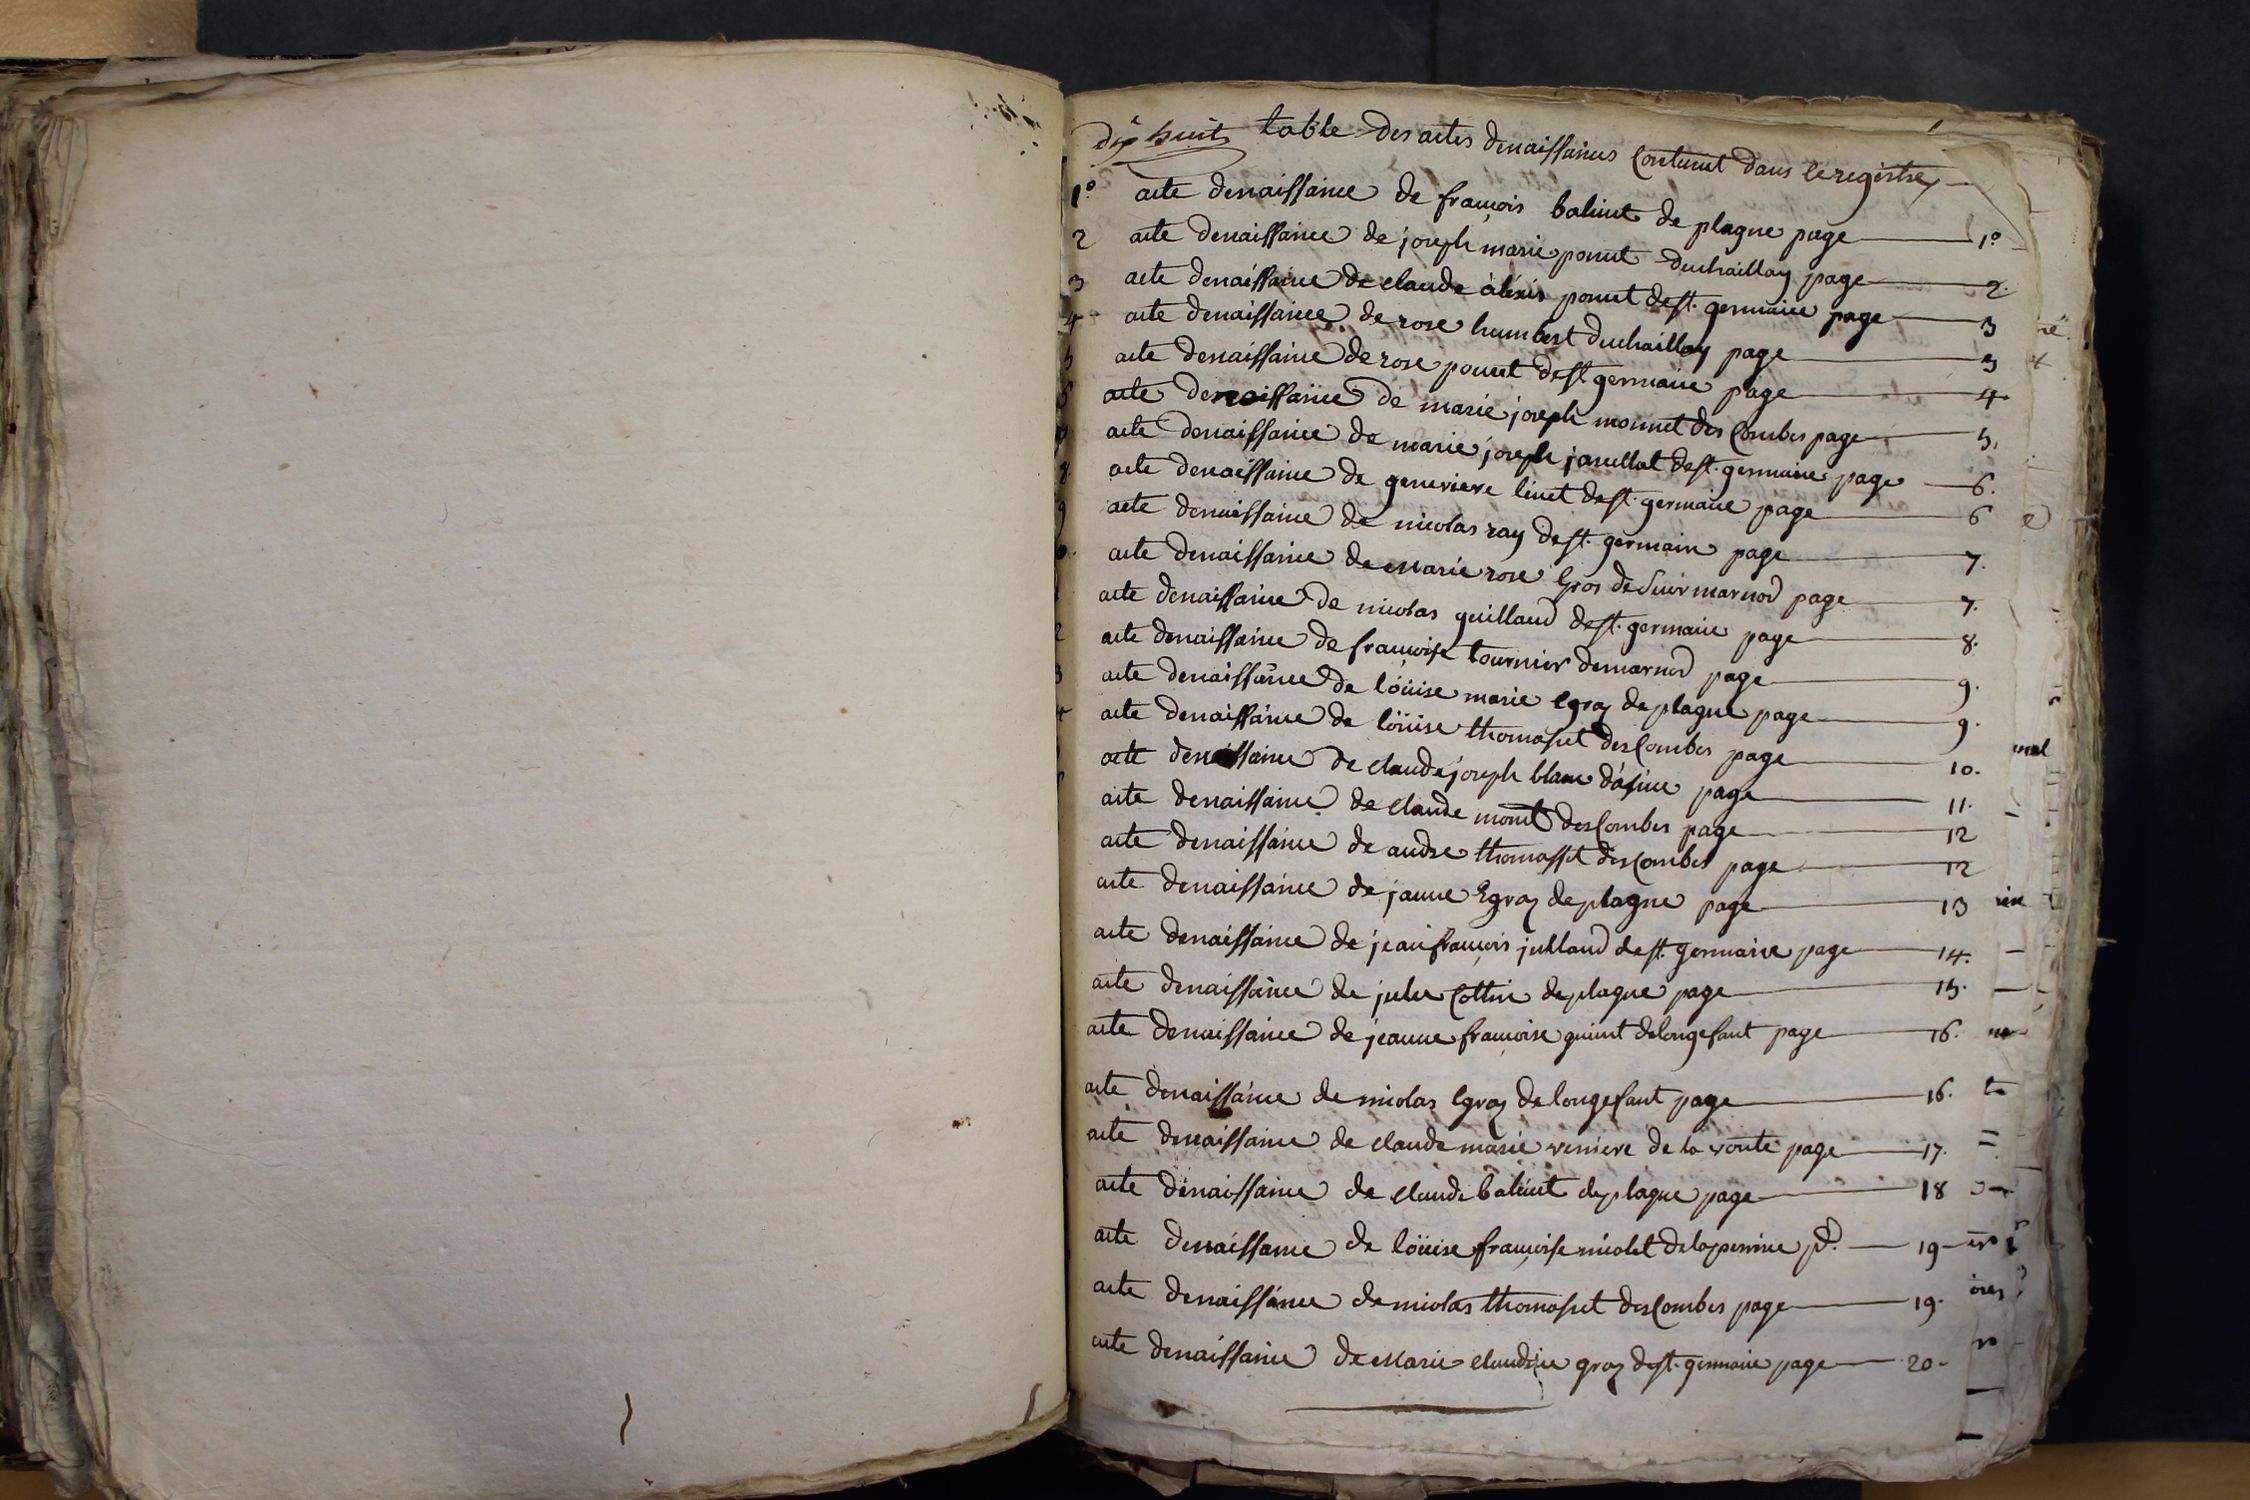 dix huit table des actes denaissances Contenuet dans le registre
1º acte denaissance de françois balivet de plagne page 1º
2 acte denaissance de joseph marie ponut duchaillay page 2.
3 acte denaissance de claude aléxis ponut de st. germaine page 3
4 acte denaissance de rose humbert duchaillay page 3
5 acte denaissance de rose ponut de st germaine page 4
6 acte denaissance de marie joseph monnet des Combes page 5.
acte denaissance de marie joseph de st. germaine page 6.
8. acte denaissance de genevieve linet de st. germaine page 6
9 acte denaissance de nicolas ray de st. germain page 7.
acte denaissance de Marie rose gros de marnod page 7.
acte denaissance de nicolas guillaud de st. germaine page 8.
2 acte denaissance de françoise tournier demarnod page 9.
3 acte denaissance de löüise marie Egraz de plagne page 9.
4 acte denaissance de löüise thomasset des Combes page 10.
acte denaissance de claude joseph blanc page 11.
acte denaissance de claude monet des Combes page 12
acte denaissance de andre thomasset des Combes page 12
acte denaissance de janne Egraz de plagne page 13
acte denaissance de jean françois julland de st. germaine page 14.
acte denaissance de julie Cottin de plagne page 15.
acte denaissance de jeanne françoise delongefaut page 16.
acte denaissance de nicolas Egraz de longefaut page 16.
acte denaissance de claude marie de la voute page 17.
acte denaissance de claude balivet de plagne page 18
acte denaissance de löüise françoise nicolet de la perrine pe. 19
acte denaissance de nicolas thomasset des Combes page 19.
acte denaissance de Marie claudine graz de st. germaine page 20